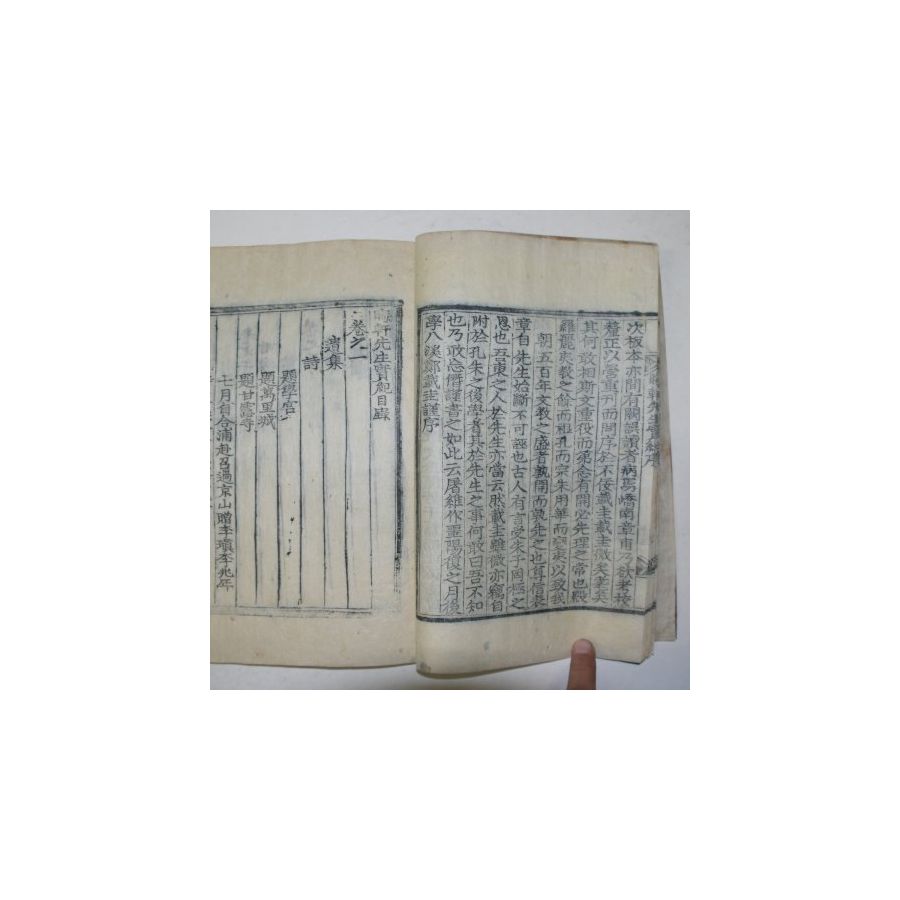 次板本亦間有闕誤讀者病焉嶠南章甫乃欲考校
釐正以營重刊而問序於不佞載圭載圭微矣耄矣
其何敢相斯文重役而第念有開必先理之常也殿
羅麗衰敎之餘而祖孔而宗朱用華而變夷以致我
朝五百年文敎之盛者孰開而孰先之也尊信表
章自先生始斷不可誣也古人有言受朱子罔極之
恩也吾東之人於先生亦當云然載圭雖微亦竊自
附於孔朱之後學者其於先生之事何敢曰吾不知
也乃敢忘僭書之如此云屠維作噩陽復之月後
學八溪鄭載圭謹序
晦軒先生實紀目錄
卷之一
遺集
詩
題學宮
題萬里城
題甘露寺
七月自合浦赴召過京山贈李瑱李兆年